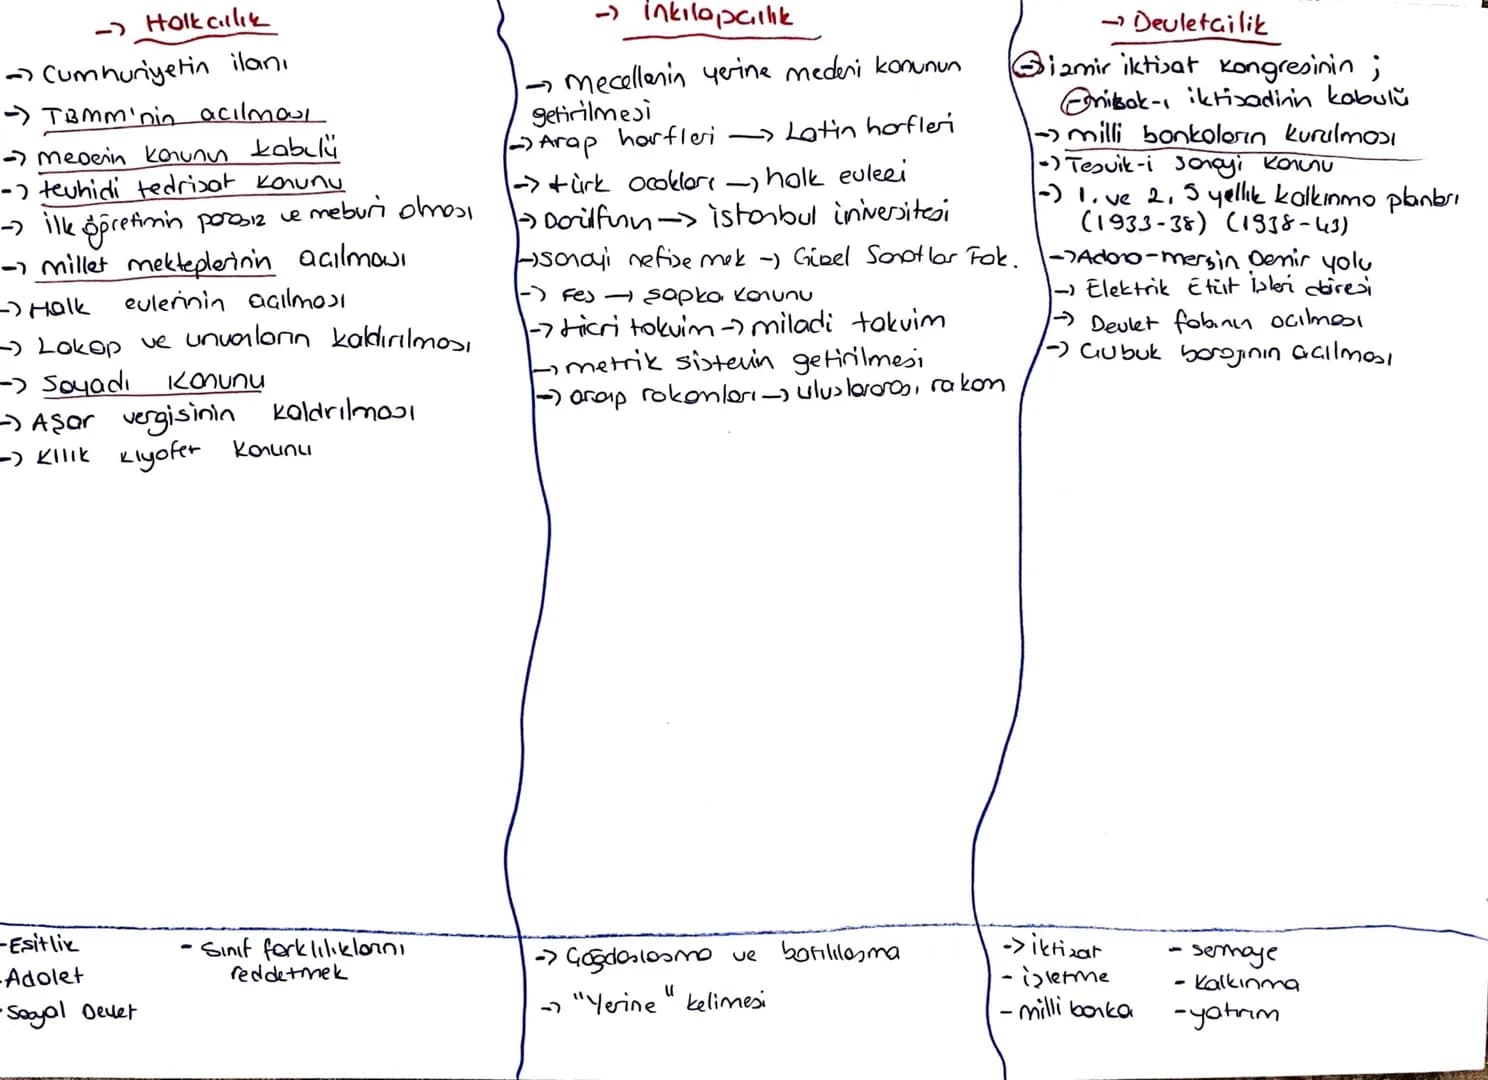 → Halkcılık
→ Cumhuriyetin ilanı
→ TBMM'nin acılması
→ medenin kanunun kabulü
→ tevhidi tedrisat kanunu
→ ilk öğretimin parasız ve meburi olması
→ millet mekteplerinin acılması
→ Halk evlerinin acılması
→ Lakap ve unvanların kaldırılması
→ Soyadı Kanunu
→ Aşar vergisinin kaldırılması
→ Kılık kıyafet kanunu
- Esitlik
- Adalet
- Sosyal Devlet
- Sınıf farklılıklarını
reddetmek
→ inkılapcılık
→ mecellenin yerine medeni kanunun
getirilmesi
→ Arap harfleri → Latin harfleri
→ türk ocakları → halk evleri
→ Darülfunun → istanbul üniversitesi
→ sanayi nefise mek → Güzel Sanatlar Fak.
→ Fes → şapka kanunu
→ Hicri takvim → miladi takvim
→ metrik sistemin getirilmesi
→ arap rakamları → uluslararası rakam
→ Çağdaslasma ve batılılaşma
→ "Yerine" kelimesi
→ Devletcilik
→ izmir iktisat kongresinin ;
→ misak-ı iktisadinin kabulü
→ milli bankaların kurulması
→ Tesvik-i Sanayi kanunu
→ 1. ve 2. 5 yıllık kalkınma planları
(1933-38) (1938-43)
→ Adana-mersin Demir yolu
→ Elektrik Etüt İşleri dairesi
→ Devlet fab.nın acılması
→ Cubuk barajının acılması
→ iktisat
- işletme
- milli banka
- sermaye
- kalkınma
- yatırım